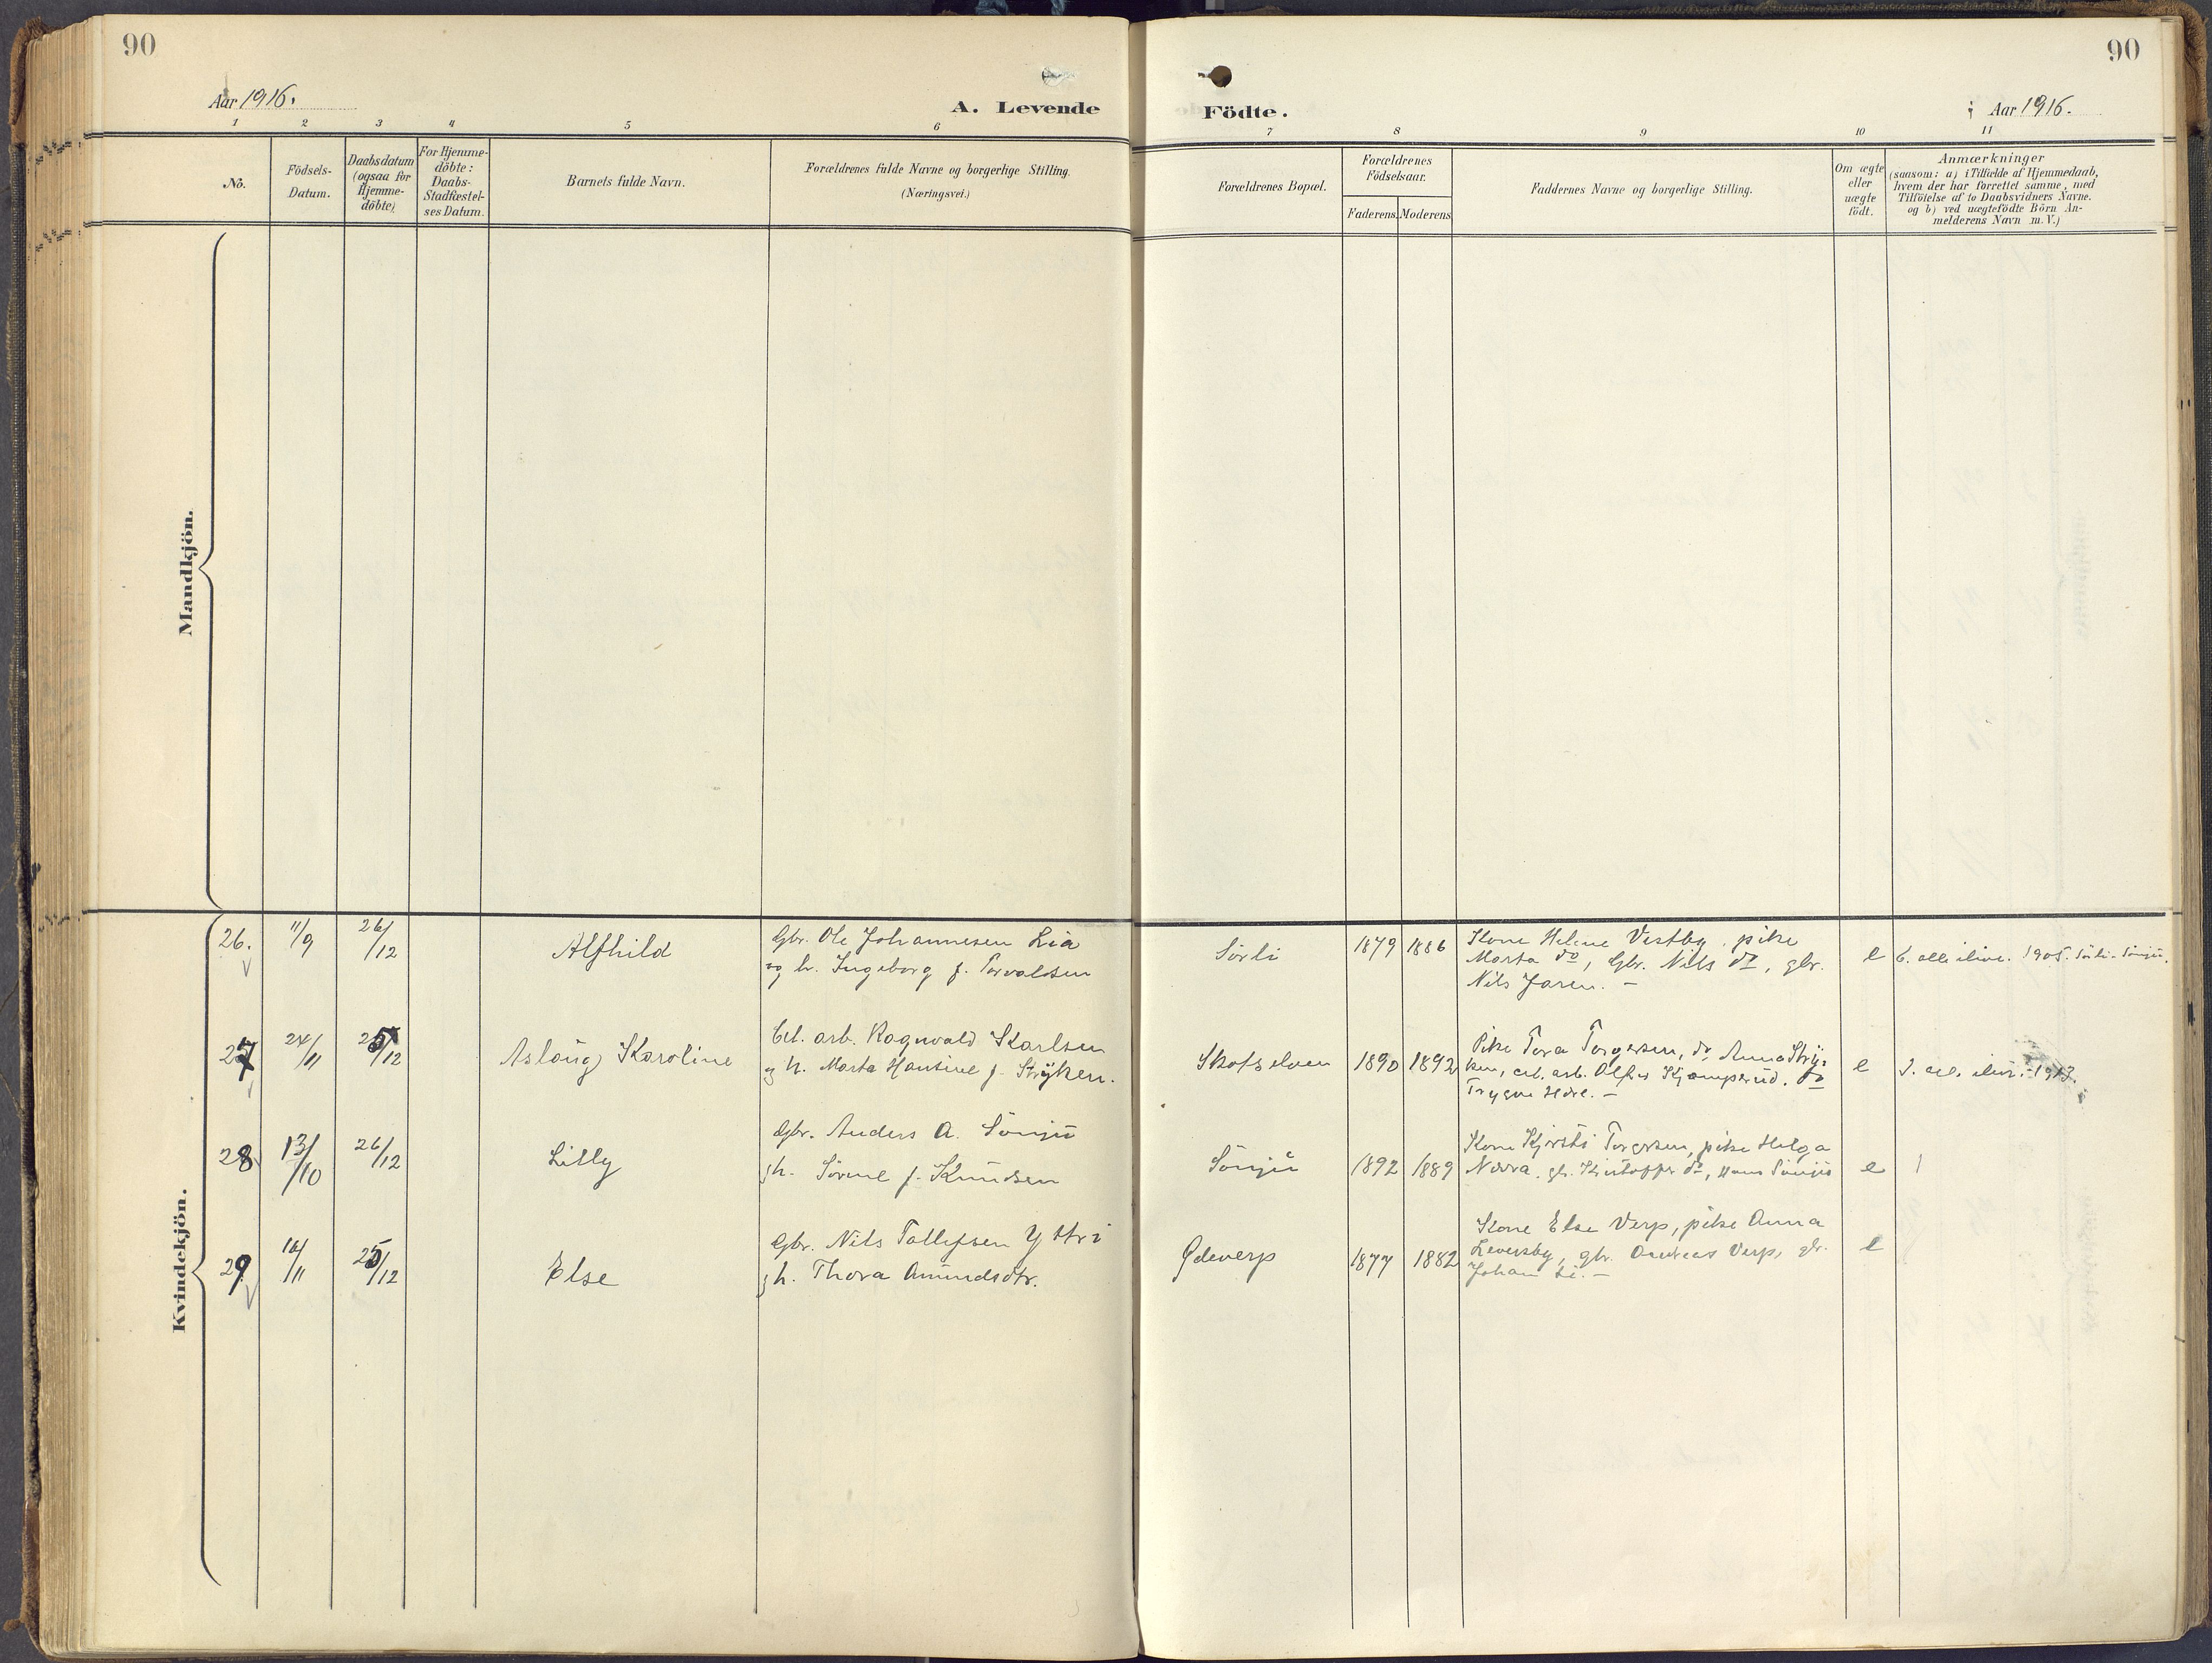 90
90
Aar 1916.
A. Levende
Födte.
Aar 1916.
1 2 3 4 5 6 7 8 9 10 11
No.
Födsels-
Datum.
Daabsdatum
(ogsaa for
Hjemme-
döbte)
For Hjemme-
döbte:
Daabs-
Stadfæstel-
ses Datum.
Barnets fulde Navn.
Forældrenes fulde Navne og borgerlige Stilling.
(Næringsvei.)
Forældrenes Bopæl.
Forældrenes
Födselsaar.
Faderens.
Moderens
Faddernes Navne og borgerlige Stilling.
Om ægte
eller
uægte
födt.
Anmærkninger
(saasom: a) i Tilfælde af Hjemmedaab,
hvem der har forrettet samme, med
Tilföielse af to Daabsvidners Navne.
og b) ved uægtefödte Börn An-
melderens Navn m. V.)
Mandkjön.
Kvindekjön.
26.
11/9
26/12
Alfhild
Gbr. Ole Johannesen Lia
og h. Ingeborg f. Torvaldsen
Sörli
1879
1886
Kone Helene Vestby, pike
Marta do, Gbr. Nils do, gbr.
Nils Jaren. –
e
6. alle ilive. 1905. Sörli-Sönjü.
27
24/11
25/12
Aslaug Karoline
Cel. arb. Ragnvald Karlsen
og h. Marta Hansine f. Stryken.
Skotselven
1890
1892
Pike Tora Torgersen, do Anna Stry-
ken, cel. arb. Olfus Kjemperud. do
Trygve Hedre. –
e
1913.
28
13/10
26/12
Lilly
Gbr. Anders A. Sönjü
og h. Sörine f. Knudsen
Sönjü
1892
1889
Kone Kjersti Torgersen, pike Helga
Narra, gbr. Kristoffer do, Hans Sönjü
e
1
29
10/11
25/12
Else
Gbr. Nils Tollefsen Yttri
og h. Thora Amundsdtr.
Ödeverp
1877
1882
Kone Else Verp, pike Anna
Leversby, gbr. Andreas Verp, gbr.
Johan Li. –
e